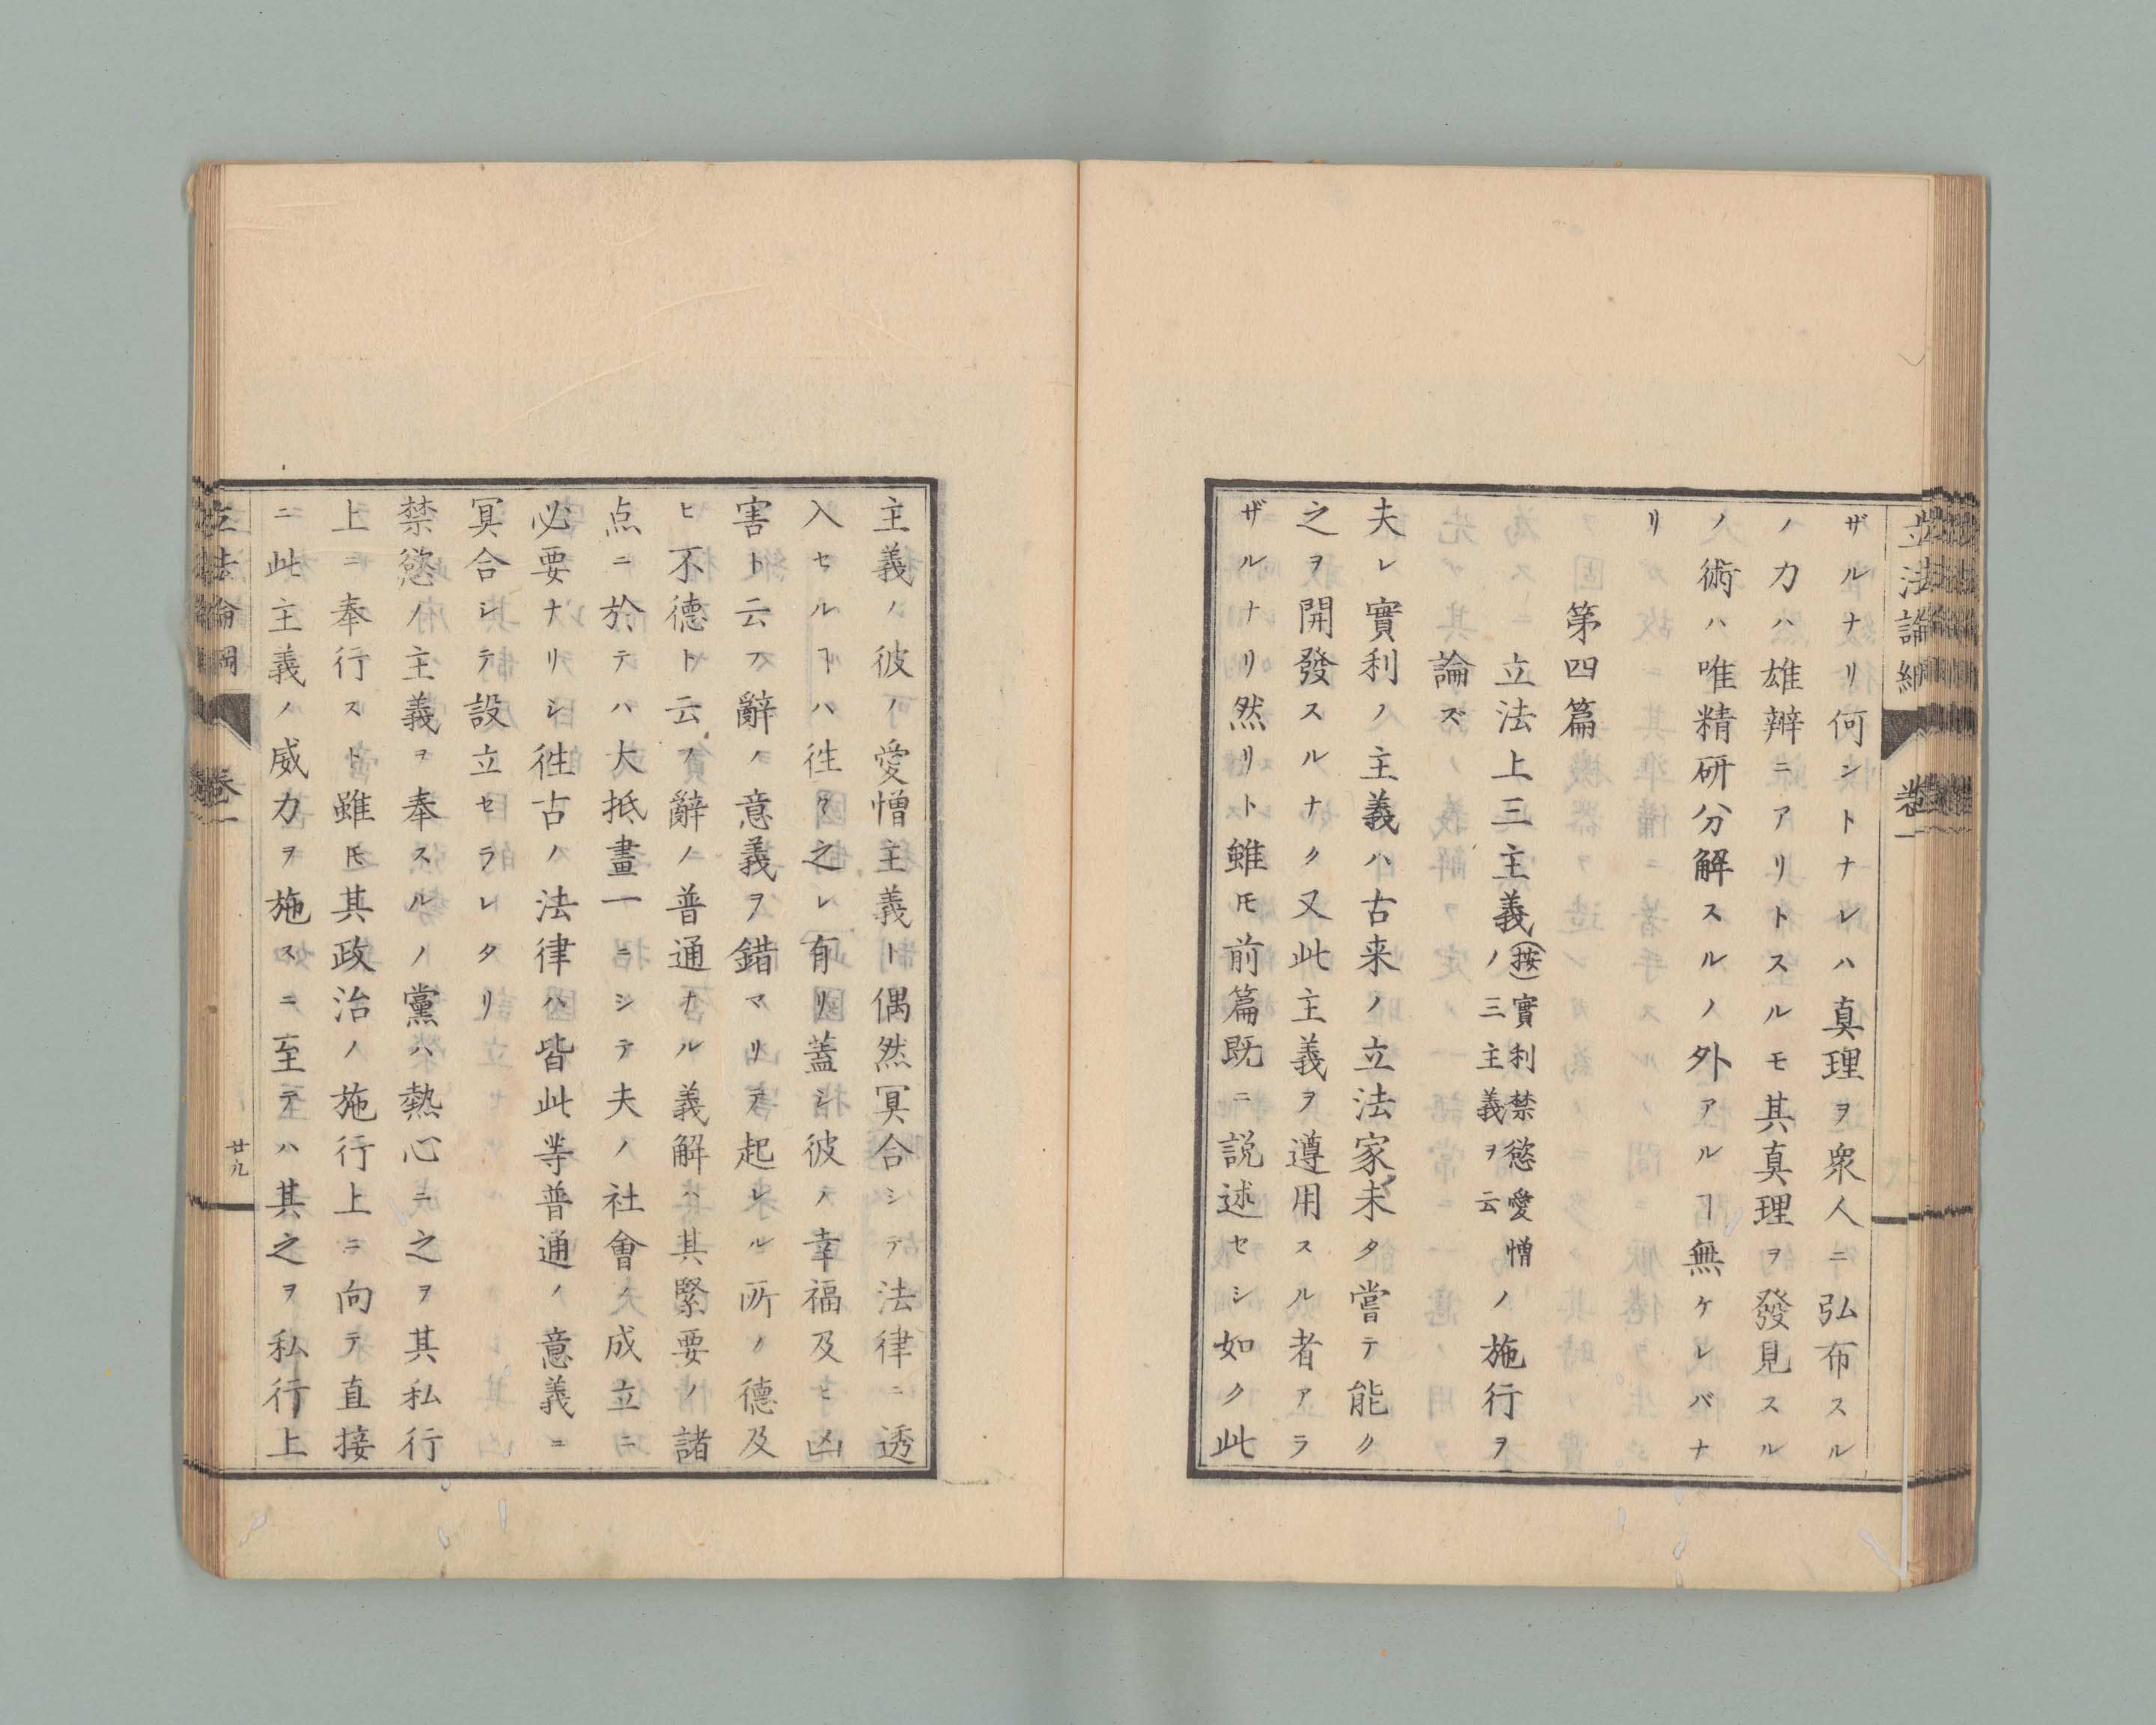 立法論綱 卷一
ザルナリ何ントナレハ真理ヲ衆人ニ弘布スル
ノ力ハ雄辨ニアリトスルモ其真理ヲ發見スル
ノ術ハ唯精研分解スルノ外アルヿ無ケレバナ
リ
第四篇
立法上三主義(按)實利禁慾愛憎ノ三主義ヲ云ノ施行ヲ
論ズ
夫レ實利ノ主義ハ古来ノ立法家未タ嘗テ能ク
之ヲ開發スルナク又此主義ヲ遵用スル者アラ
ザルナリ然リト雖𪜈前篇既ニ説述セシ如ク此
主義ノ彼ノ愛憎主義ト偶然冥合シテ法律ニ透
入セルヿハ徃々之レ有リ蓋シ彼ノ幸福及ヒ凶
害ト云フ辭ノ意義ヲ錯マリテ起レル所ノ德及
ヒ不德ト云フ辭ノ普通ナル義解ハ其緊要ノ諸
点ニ於テハ大抵畫一ニシテ夫ノ社會ノ成立ニ
必要ナリシ徃古ノ法律ハ皆此等普通ノ意義ニ
冥合シテ設立セラレタリ
禁慾ノ主義ヲ奉スルノ黨ハ熱心ニ之ヲ其私行
上ニ奉行スト雖𪜈其政治ノ施行上ニ向テ直接
ニ此主義ノ威力ヲ施スニ至テハ其之ヲ私行上
立法論綱 卷一 廿九